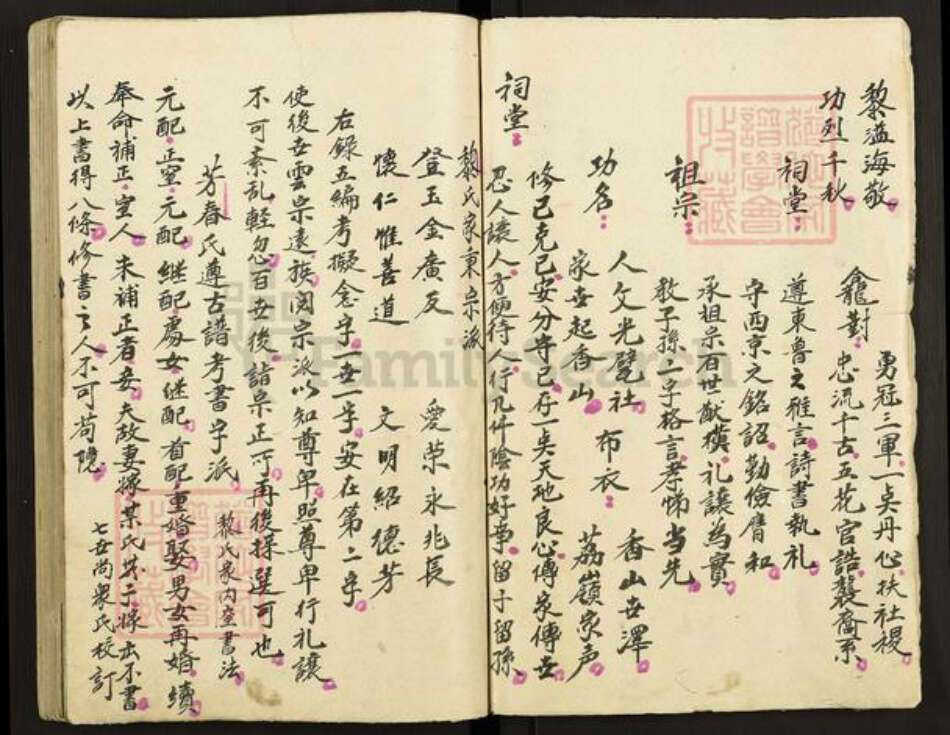 黎溢海敬
功烈千秋
龕對 勇冠三軍一点丹心扶社稷
忠流千古五花官誥襲裔系
祠堂 遵東魯之雅言詩書執礼
守西京之銘詔勤儉膺和
祖宗 承祖宗百世猷横礼讓為實
教子孫二字格言孝悌当先
功名 人文光甓社 布衣 香山世澤
家世起香山 荔嶺家声
修己克己安分守己存一点天地良心傳家傳世
祠堂 忍人讓人方便待人行几件陰功好爭留子留孫
黎氏家東宗派
登玉金廣及 愛荣永兆長
懷仁惟善道 文明紹德芳
右錄五編考擬念字一世一字安在第二字
使後世雲宗遠族閱宗派以知尊卑照尊卑行礼讓
不可紊乱輕忽百世後請宗正可再後採選可也
芳春氏遵古譜考書字派 黎氏家内查書法
元配正室元配継配處女継配首配重婚娶男女再婚續
奉命補正室人未補正者妾夫故妻嫁某氏生子嫁出不書
以上書得八條修書之人不可苟隐
七世尚衆氏校訂
FamilySearch